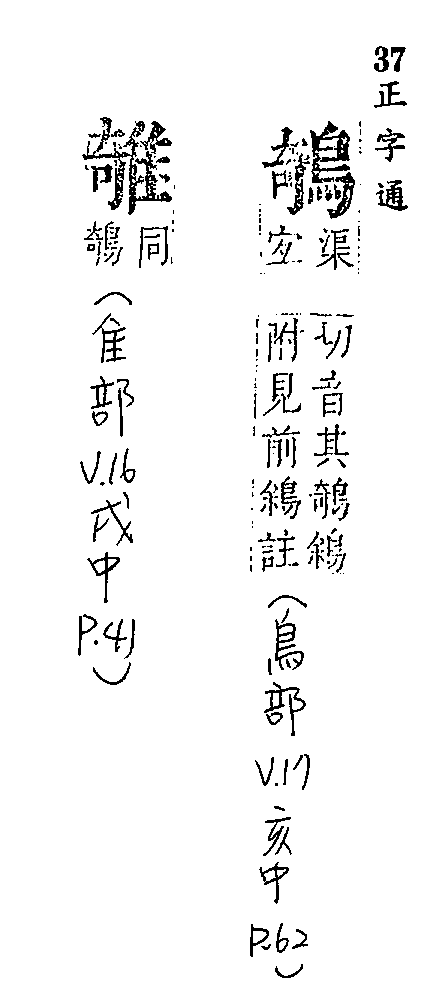 37 正字通
鵸 渠宐 切音其鵸鵌附見前鵌註 (鳥部 V.17 亥中 P.62)
同鵸 (隹部 V.16 戌中 P.41)